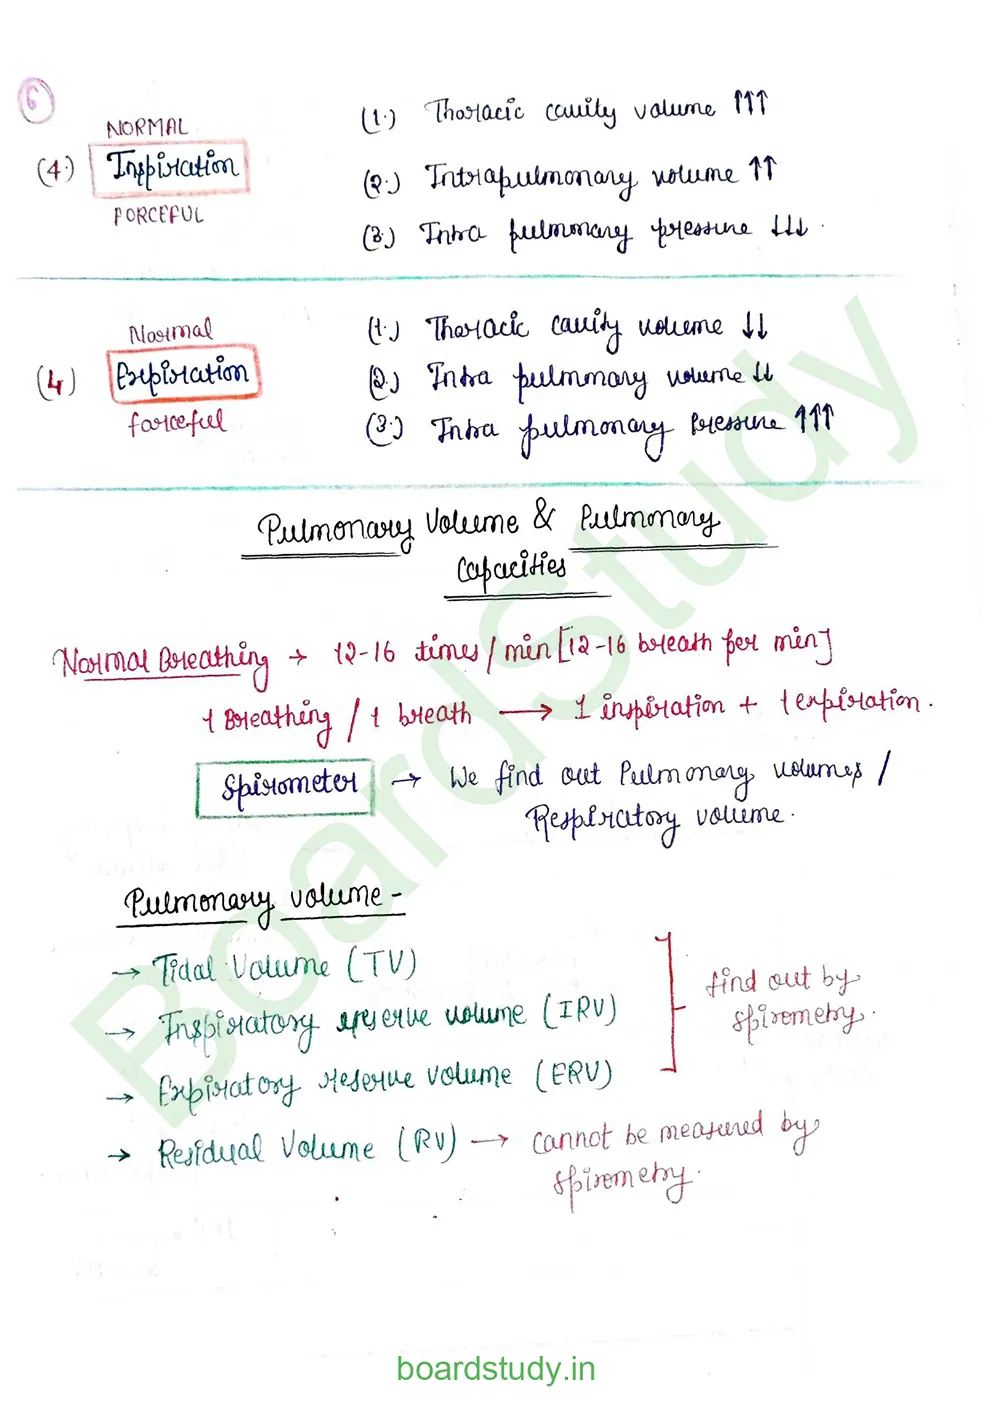 6
NORMAL
(4.) Inspiration
FORCEFUL
(1.) Thoracic cavity volume ↑↑↑
(2.) Intrapulmonary volume ↑↑
(3.) Intra pulmonary pressure ↓↓↓.
Normal
(4) Expiration
forceful
(1.) Thoracic cavity volume ↓↓
(2.) Intra pulmonary volume ↓↓
(3.) Intra pulmonary Pressure ↑↑↑
Pulmonary Volume & Pulmonary
Capacities
Normal Breathing → 12-16 times/min [12-16 breath per min]
1 Breathing / 1 breath → 1 inspiration + 1 expiration.
Spirometer → We find out Pulmonary volumes /
Respiratory volume.
Pulmonary volume -
→ Tidal Volume (TV)
→ Inspiratory reserve volume (IRV)
→ Expiratory reserve volume (ERV)
find out by
spirometry.
→ Residual Volume (RV) → cannot be measured by
spirometry.
BoardStudy
boardstudy.in